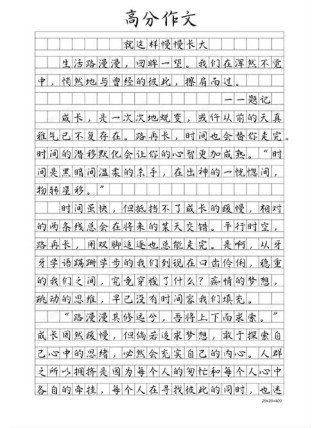 高分作文
就这样慢慢长大
生活路漫漫，回眸一望。我们在浑然不觉
中，恍然地与曾经的彼此，擦肩而过。
——题记
成长，是一次次地蜕变，或许从前的天真
稚气已不复存在。路再长，时间也会替你走完。
时间的潜移默化会让你的心智更加成熟。“时
间是黑暗间温柔的杀手，在出神的一恍惚间，
物转星移。”
时间虽快，但抵挡不了成长的缓慢，相对
的两条线总会在将来的某天交错。平行时空，
路再长，用双脚追逐也总能走完。是啊，从牙
牙学语蹒跚学步的我们到说在口齿伶俐，稳重
的我们之间，究竟穿梭了什么？痴情的梦想，
跳动的思维，早已没有时间容我们填充。
“路漫漫其修远兮，吾将上下而求索。”
成长固然缓慢，但倘若追求梦想，敢于探索自
己心中的思绪，必然会充实自己的内心。人群
之所以拥挤是因为每个人的匆忙和每个人心中
各自的牵挂，每个人在寻找彼此的同时，也迷
20×20=400